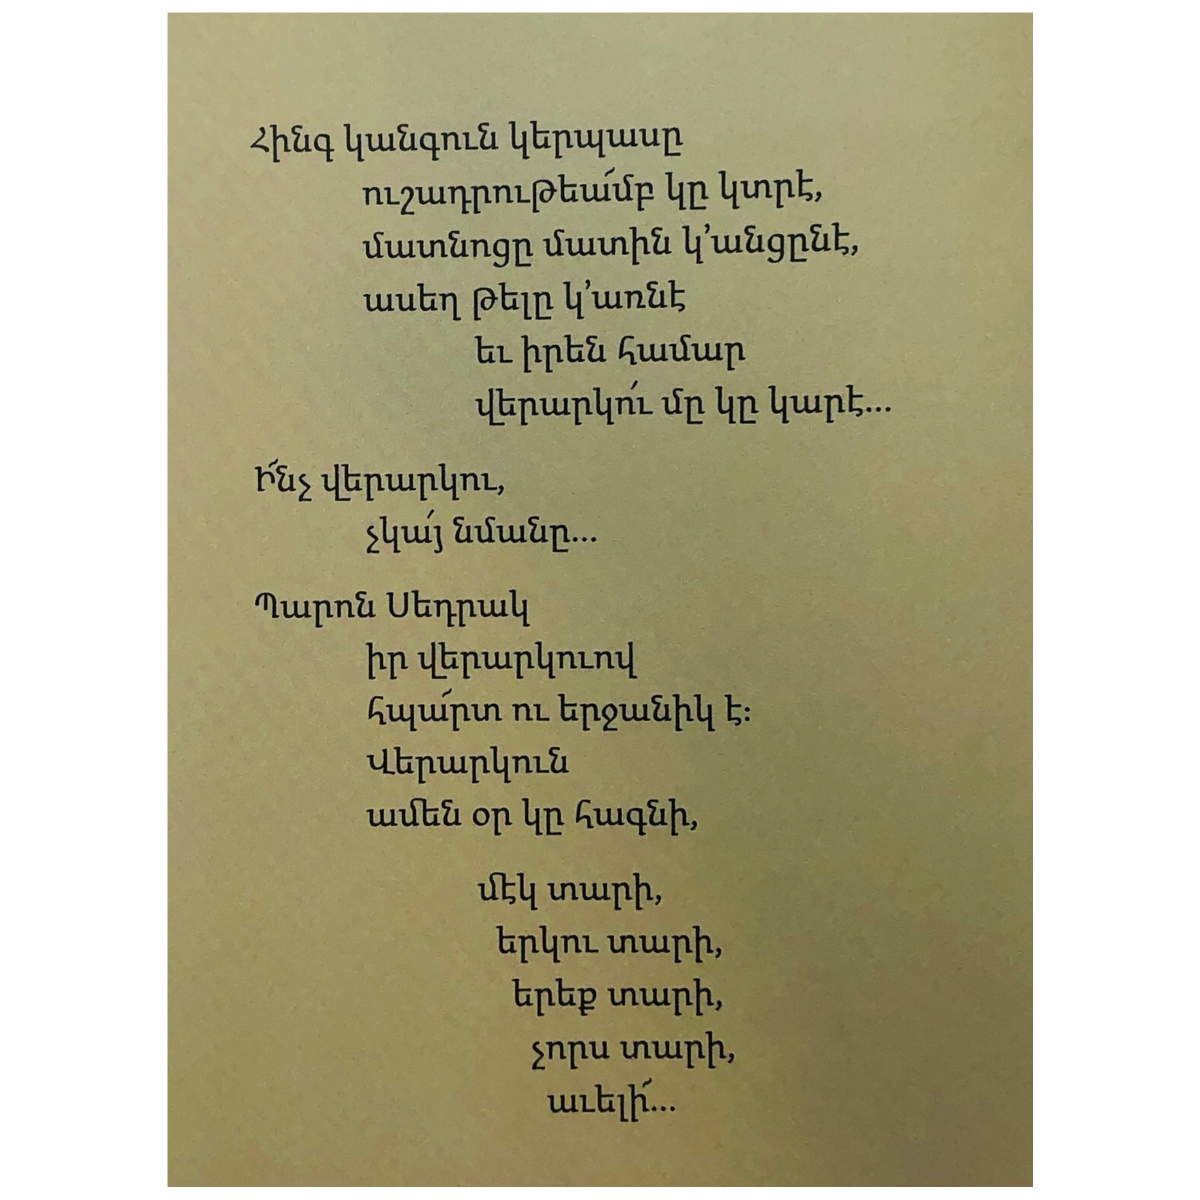 Հինգ կանգուն կերպասը
ուշադրութեա՛մբ կը կտրէ,
մատնոցը մատին կ՚անցընէ,
ասեղ թելը կ՚առնէ
եւ իրեն համար
վերարկո՛ւ մը կը կարէ...
Ի՜նչ վերարկու,
չկա՛յ նմանը...
Պարոն Սեդրակ
իր վերարկուով
հպա՛րտ ու երջանիկ է։
Վերարկուն
ամեն օր կը հագնի,
մէկ տարի,
երկու տարի,
երեք տարի,
չորս տարի,
աւելի՜...